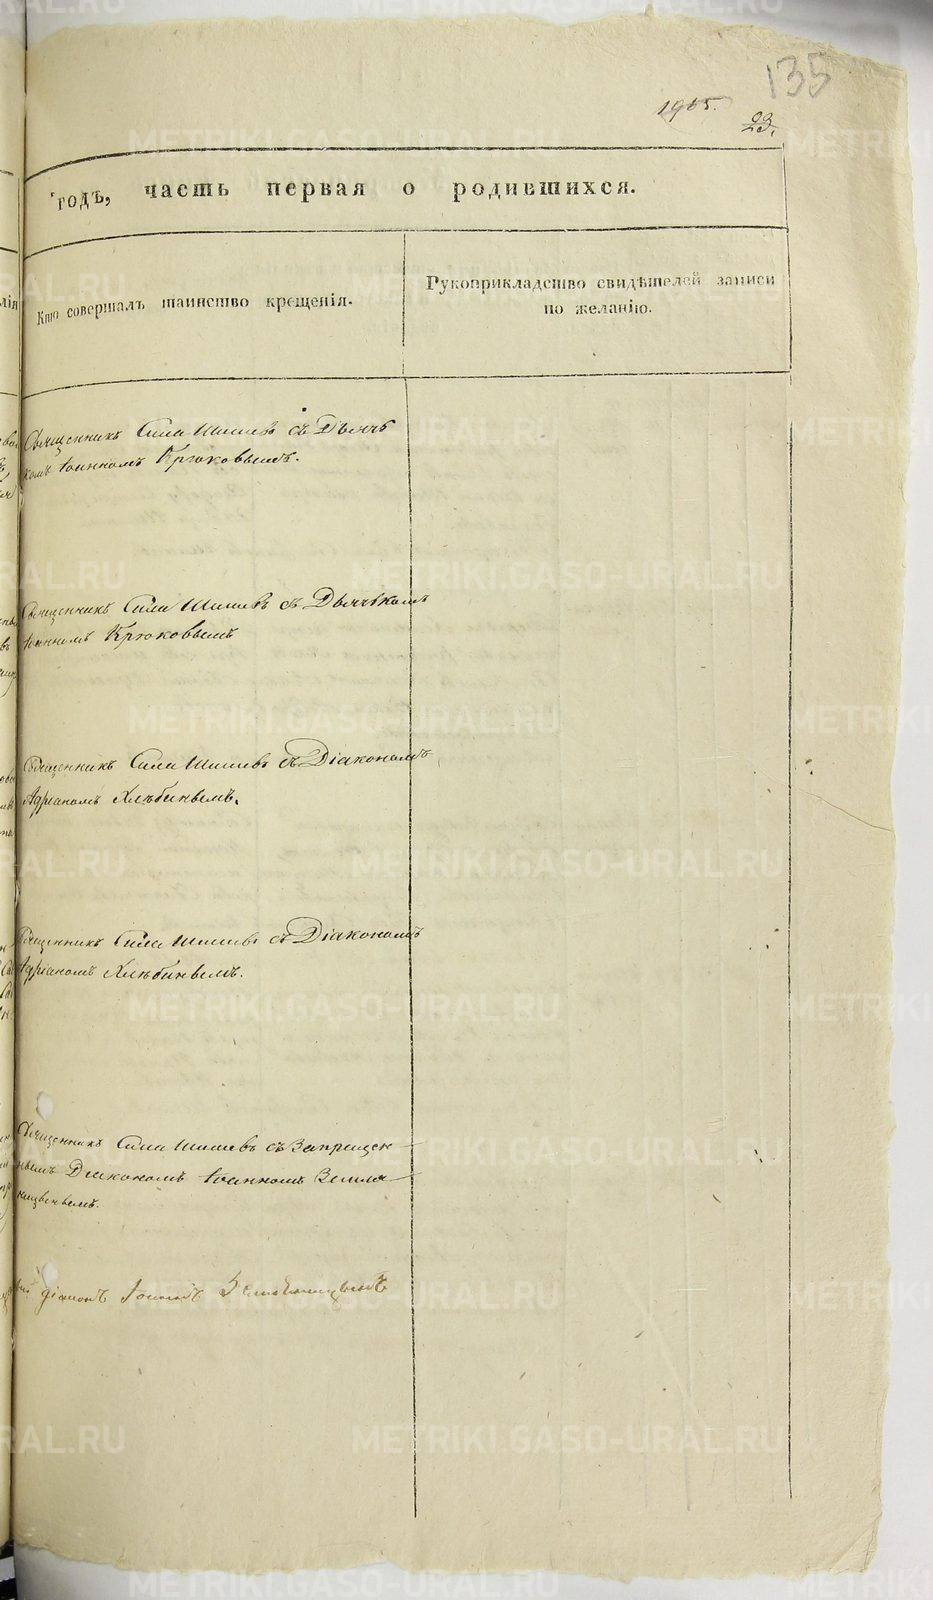 135
1905.
годъ, часть первая о родившихся.
Кто совершалъ таинство крещенія.
Рукоприкладство свидѣтелей записи
по желанію.
Священникъ Сила Шишевъ съ Дьячь
комъ Іоанномъ Крюковымъ.
Священникъ Сила Шишевъ съ Дьячькомъ
Іоанномъ Крюковымъ
Священникъ Сила Шишевъ съ Діакономъ
Адріаномъ Хлѣбинымъ.
Священникъ Сила Шишевъ съ Діакономъ
Адріаномъ Хлѣбинымъ.
Священникъ Сила Шишевъ съ Запрещен
нымъ Діакономъ Іоанномъ Земля
ницынымъ.
діаконъ Іоаннъ Земляницынъ
METRIKI.GASO-URAL.RU